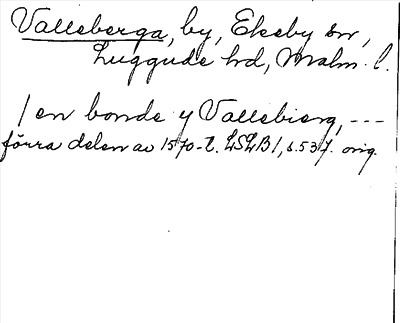 Valleberga, by, Ekeby sn,
Luggude hd, Malm. l.
/ en bonde y Vallebierg, ---
förra delen av 1570-t. LSLB1, s. 537. orig.